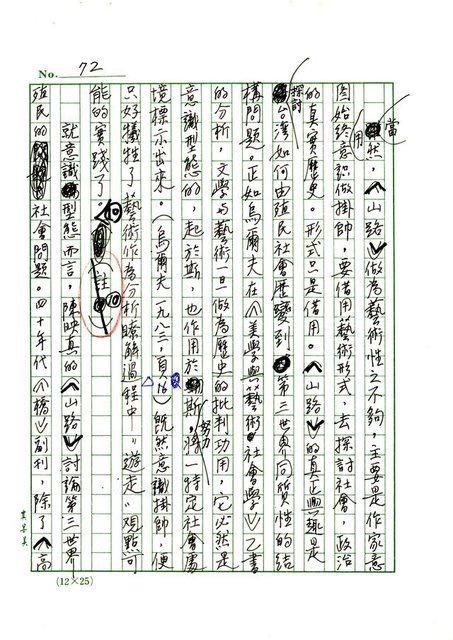 No. 72
當然，《山路》做為藝術性之不夠，主要是作家意
圖始終意識掛帥，要借用藝術形式，去探討社會，政治
的真實歷史。形式只是借用。《山路》的真正興趣是
探討台灣如何由殖民社會歷變到第三世界同質性的結
構問題。正如烏爾夫在《美學與藝術社會學》乙書
的分析，文學與藝術一旦做為歷史的批判功用，它必然是
意識型態的，起於斯，也作用於斯，努力將一特定社會處
境標示出來。（烏爾夫一九八三，頁16）既然意識掛帥，便
只好犧牲了藝術作為分析瞭解過程中"遊走"觀點可
能的實踐了。註⑩
就意識型態而言，陳映真的《山路》討論第三世界
殖民的社會問題。四十年代《橋》副刊，除了《高
(12×25)